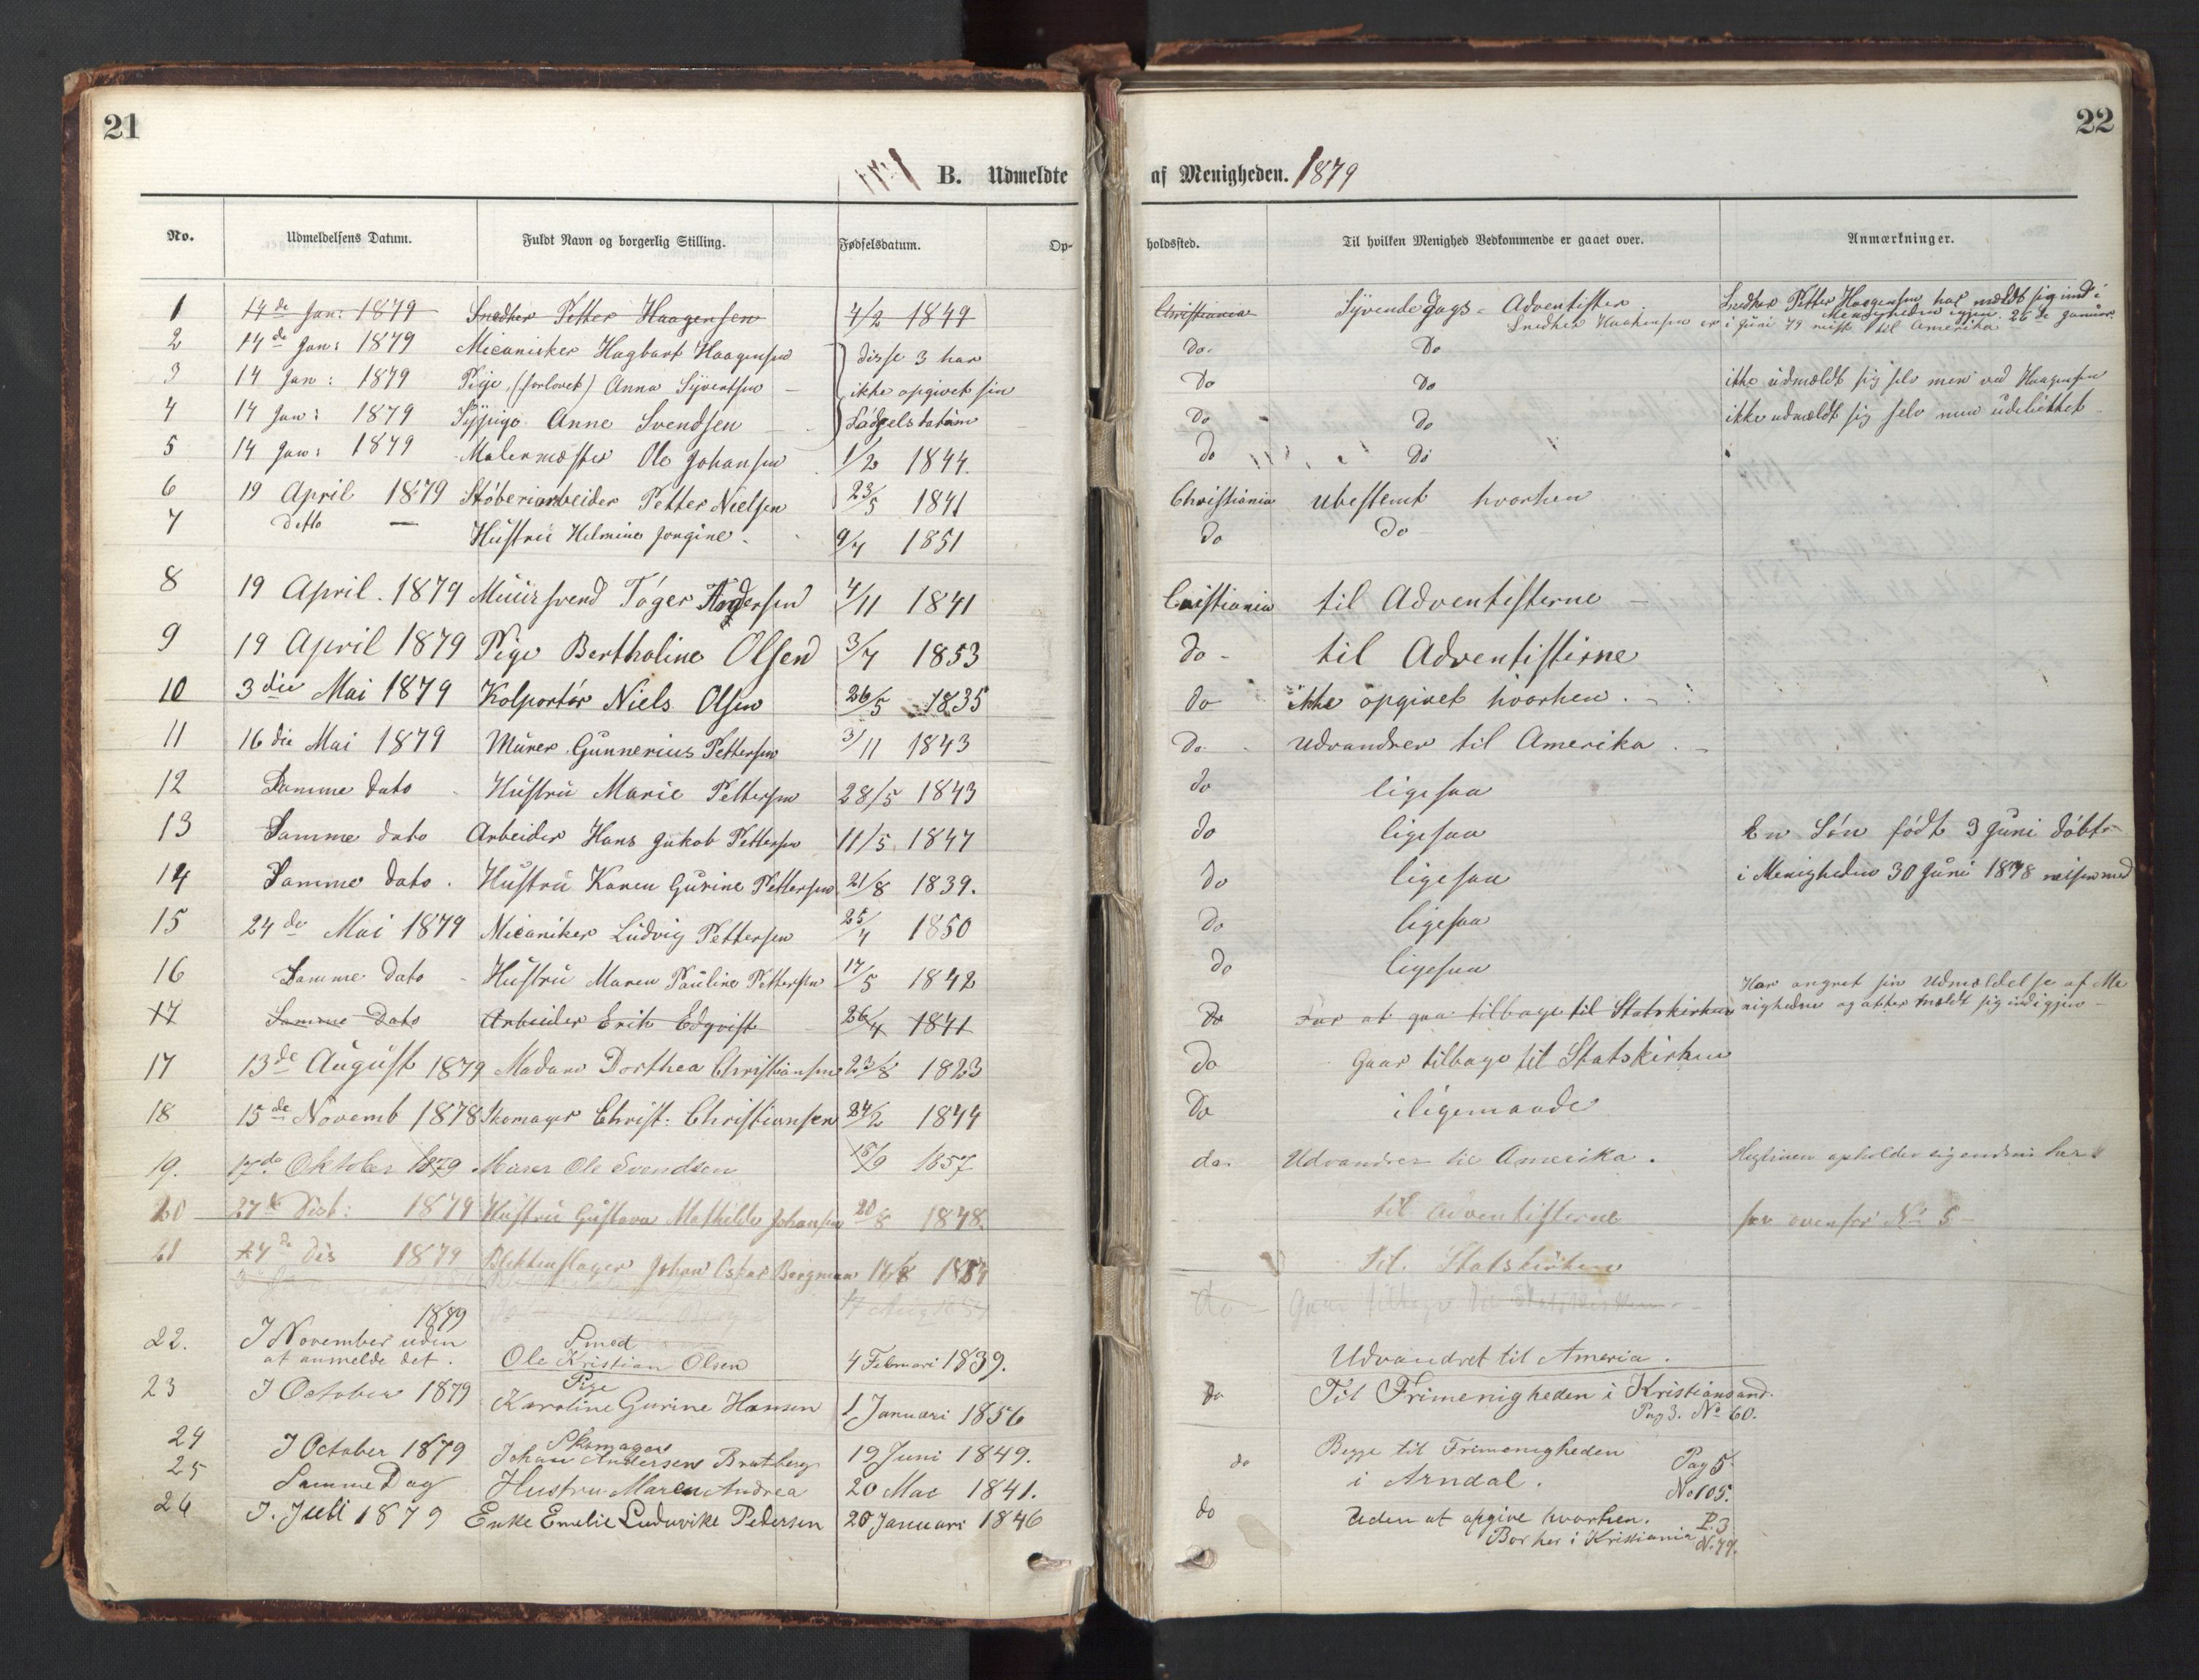 21
22
B. Udmeldte af Menigheden. 1879
No. Udmeldelsens Datum. Fuldt Navn og borgerlig Stilling. Fødselsdatum. Opholdsfted. Til hvilken Menighed Vedkommende er gaaet over. Anmærkninger.
1 14de Jan: 1879 Snedker Petter Haagensen 4/2 1849 Christiania Syvende Dags-Adventister. Snedker Petter Haagensen har meldt sig ind i Menigheden igjen 26de Januar.
Snedker Haakensen er i Juni 79 reist til Amerika
2 14de Jan: 1879 Micanisker Hagbart Haagensen disse 3 har Do. Do
3 14 Jan: 1879 Pige (forlovet) Anna Syvertsen – ikke opgivet sin Do Do ikke udmeldt sig selv men ved Haagensen
4 14 Jan: 1879 Sypige Anne Svendsen – Fødselsdatum Do Do ikke udmeldt sig selv men udeblittet
5 14 Jan: 1879 Malermester Ole Johansen 1/2 1844. Do Do
6 19 April 1879 Støberiarbeider Petter Nielsen 23/5 1841 Christiania ubestemt hvorhen
7 ditto – Hustru Helmine Jorgine 9/7 1851 Do Do
8 19 April. 1879 Muursvend Tøger Andersen 4/11 1841 Cristiania til Adventisterne –
9 19 April 1879 Pige Bertholine Olsen 3/7 1853 do - til Adventisterne
10 3die Mai 1879 Kolportør Niels Olsen 26/5 1835 do ikke opgivet hvorhen. –
11 16die Mai 1879 Murer Gunnerius Pettersen 3/11 1843 Do. udvandrer til Amerika. –
12 Samme dato Hustru Marie Pettersen 28/5 1843 do ligesaa
13 Samme dato Arbeider Hans Jakob Pettersen 11/5 1847 do ligesaa En Søn født 3 Juni døbt
14 Samme dato. Hustru Karen Gurine Pettersen 21/8 1839. do ligesaa i Menigheden 30 Juni 1878 reiser med
15 24de Mai 1879 Micaniker Ludvig Pettersen 25/4 1850 do ligesaa
16 Samme dato - Hustru Maren Pauline Pettersen 17/5 1842 do ligesaa
17 Samme Dato Arbeider Erik Edqvist 26/4 1841 Do For at gaa tilbage til Statskirken Har angret sin Udmeldelse af Menigheden og atter meldt sig ind igjen –
17 13de August 1879 Madam Dorthea Christiansen 23/8 1823 do Gaar tilbage til Statskirken
18 15de Novemb 1878 Skomager Christ: Christiansen 24/2 1844 Do i ligemaade
19. 17de Oktober 1879 Murer Ole Svendsen 18/9 1857 do. Udvandrer til Amerika. Hustruen opholder sig endnu her
20 27de Dist: 1879 Hustru Gustava Mathilde Johansen 20/8 1848. til Adventisterne see ovenfor No 5 –
21 27de Dis 1879 Blikkenslager Johan Oskar Bergman Til. Statskirken
do – Gaar tilbage til Statskirken –
22. 1879 I November uden at anmelde det. Smed Ole Kristian Olsen 4 Februari 1839. Udvandret til Ameria.
23 I October 1879 Pige Karoline Gurine Hansen 1 Januari 1856 do Til Frimenigheden i Kristiansand. Pag 3. No 60.
24 I October 1879 Skomager Johan Andersen Bratberg 19 Juni 1849. do Begge til Frimenigheden Pag 5
25 Samme Dag Hustru Maren Andrea 20 Mai 1841. i Arndal. No 105.
26 I. Juli 1879 Enke Emelie Luduvike Pedersen 20 Januari 1846 do Uden at opgive hvorhen. P. 3
Bor her i Kristiania N. 79.